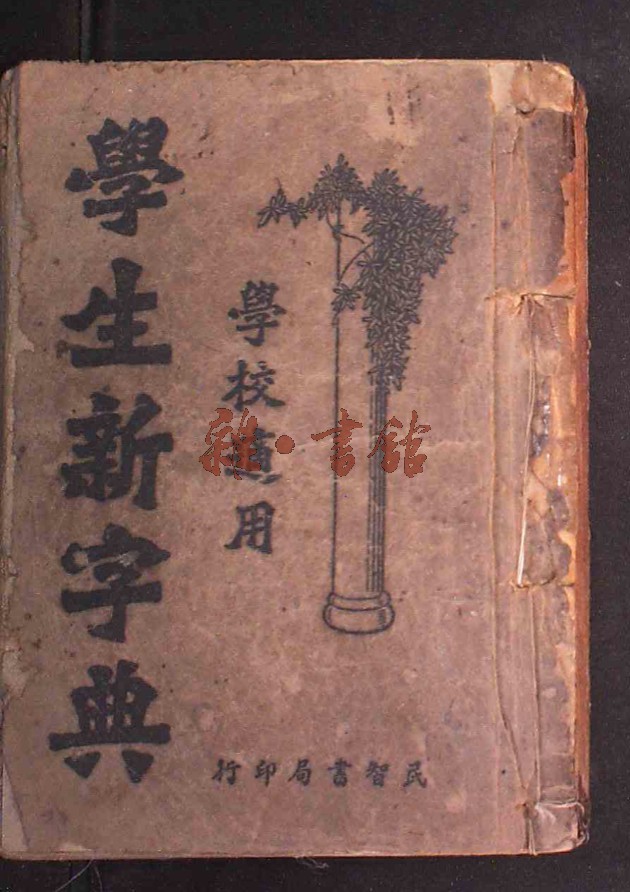 學生新字典
學校適用
民智書局印行
雅·書館